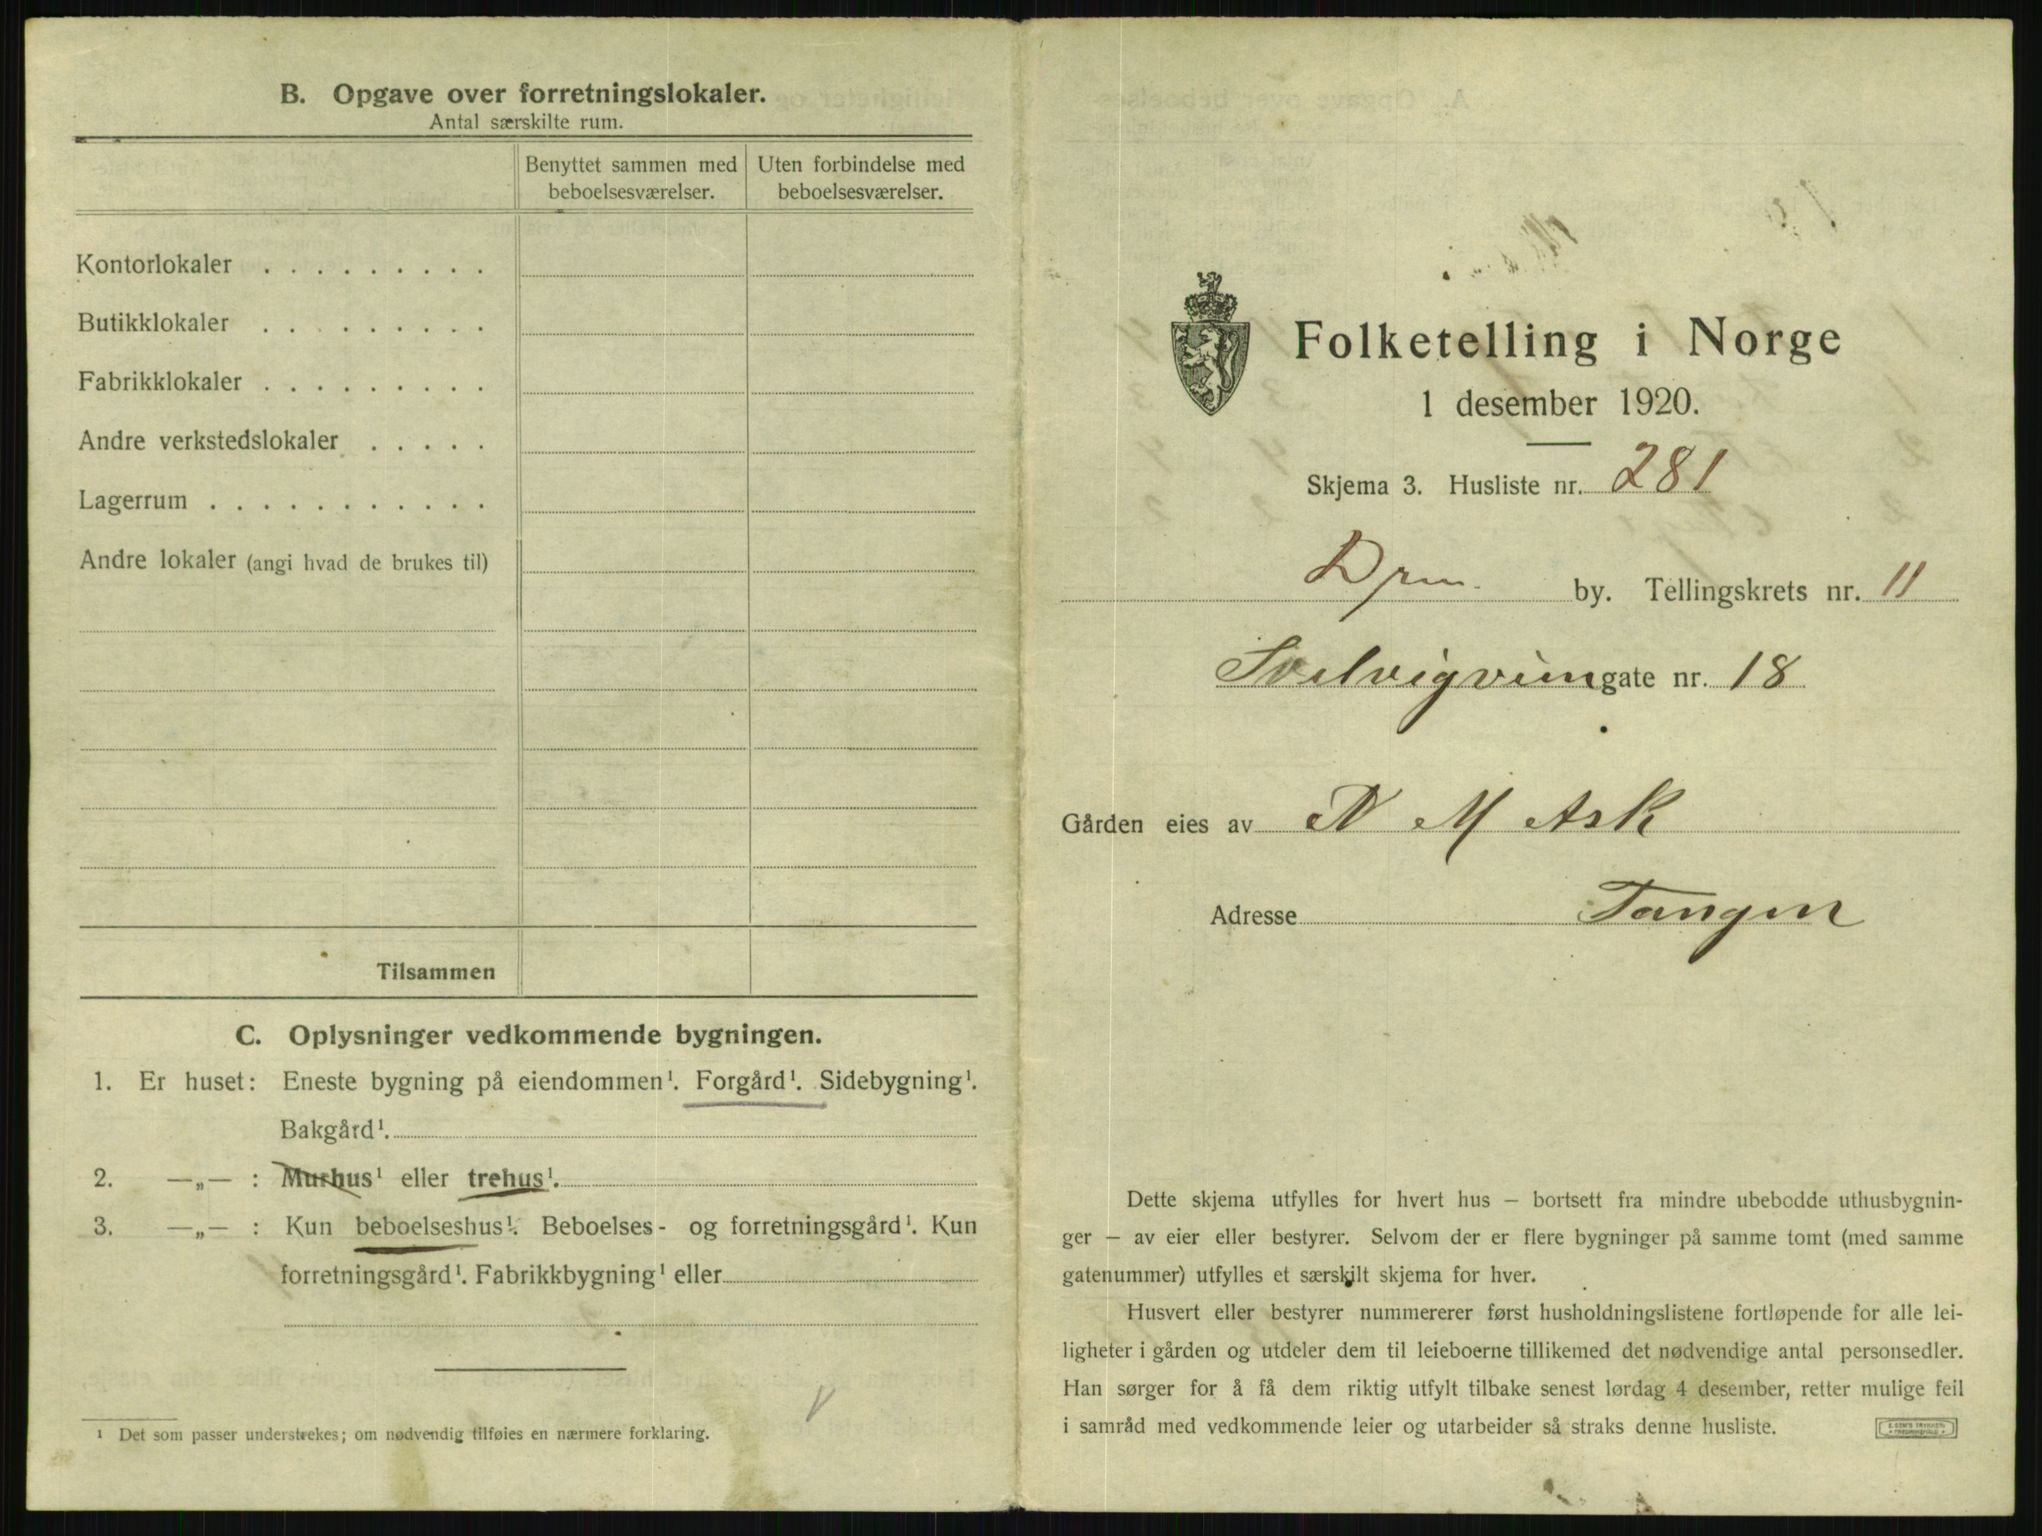 B. Opgave over forretningslokaler.
Antal særskilte rum.
Benyttet sammen med beboelsesværelser.
Uten forbindelse med beboelsesværelser.
Kontorlokaler . . . . . . . . .
Butikklokaler . . . . . . . . .
Fabrikklokaler . . . . . . . . .
Andre verkstedslokaler . . . . .
Lagerrum . . . . . . . . . . .
Andre lokaler (angi hvad de brukes til)
Tilsammen
C. Oplysninger vedkommende bygningen.
1. Er huset: Eneste bygning på eiendommen¹. Forgård¹. Sidebygning¹.
Bakgård¹.
2. —„— : Murhus¹ eller trehus¹.
3. —„— : Kun beboelseshus¹. Beboelses- og forretningsgård¹. Kun
forretningsgård¹. Fabrikkbygning¹ eller
¹ Det som passer understrekes; om nødvendig tilføies en nærmere forklaring.
Folketelling i Norge
1 desember 1920.
Skjema 3. Husliste nr. 281
Drm. by. Tellingskrets nr. 11
Svelvigveien gate nr. 18
Gården eies av N M Ask
Adresse Tangen
Dette skjema utfylles for hvert hus – bortsett fra mindre ubebodde uthusbygnin-
ger – av eier eller bestyrer. Selvom der er flere bygninger på samme tomt (med samme
gatenummer) utfylles et særskilt skjema for hver.
Husvert eller bestyrer nummererer først husholdningslistene fortløpende for alle lei-
ligheter i gården og utdeler dem til leieboerne tillikemed det nødvendige antal personsedler.
Han sørger for å få dem riktig utfylt tilbake senest lørdag 4 desember, retter mulige feil
i samråd med vedkommende leier og utarbeider så straks denne husliste.